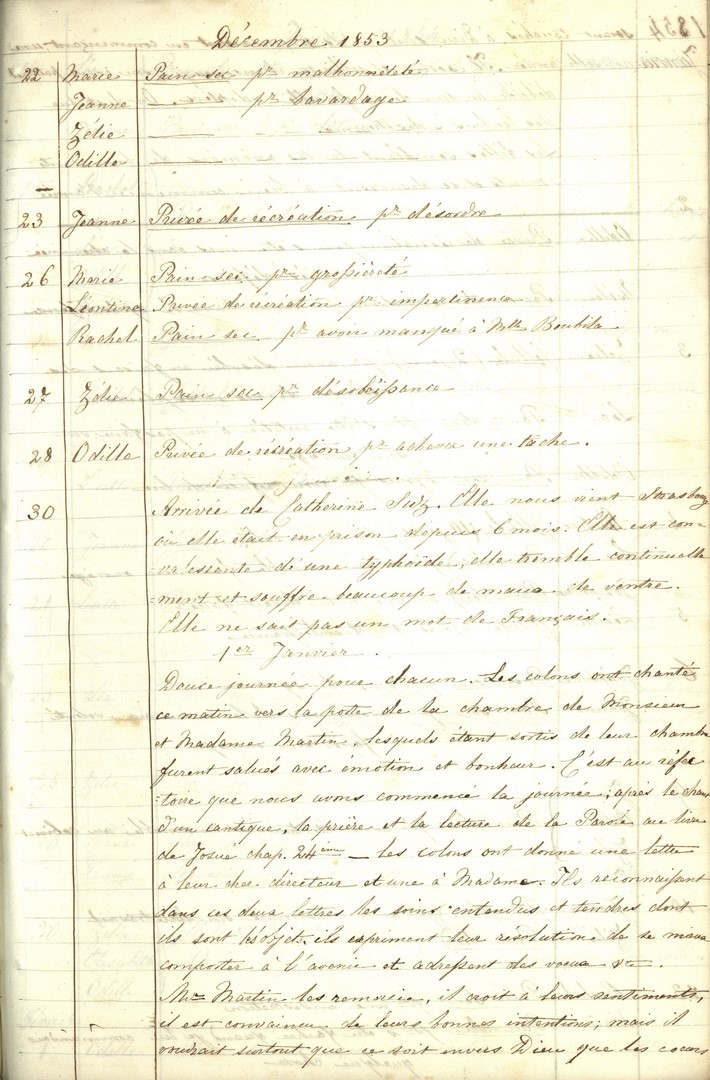 Décembre 1853
22 Marie Pain sec pr malhonnêteté
Jeanne — pr bavardage
Zélie — —
Odille — —
23 Jeanne Privée de récréation pr désordre
26 Marie Pain sec pr grossièreté
Léontine Privée de récréation pr impertinence
Rachel Pain sec pr avoir manqué à Mlle
27 Zélie Pain sec pr désobéissance
28 Odille Privée de récréation pr achever une tâche.
30 Arrivée de Catherine Elle nous vient Strasbourg
où elle était en prison depuis 6 mois. Elle est con-
valescente de une typhoïde, elle tremble continuelle
=ment et souffre beaucoup de maux de ventre.
Elle ne sait pas un mot de Français.
1er Janvier.
Douce journée pour chacun. Les colons ont chanté
ce matin vers la porte de la chambre de Monsieur
et Madame Martin, lesquels étant sortis de leur chambre
furent salués avec émotion et bonheur. C'est au réfec
=toire que nous avons commencé la journée; après le chant
d'un cantique, la prière et la lecture de la Parole au livre
de Josué chap. 24ème — les colons ont donné une lettre
à leur cher directeur et une à Madame. Ils reconnaissent
dans ces deux lettres les soins entendus et tendres dont
ils sont l'objet, ils expriment leur résolution de se mieux
comporter à l'avenir et adressent des voeux &c.
Mr Martin les remercie, il croit à leurs sentiments,
il est convaincu de leurs bonnes intentions; mais il
voudrait surtout que ce soit envers Dieu que les coeurs